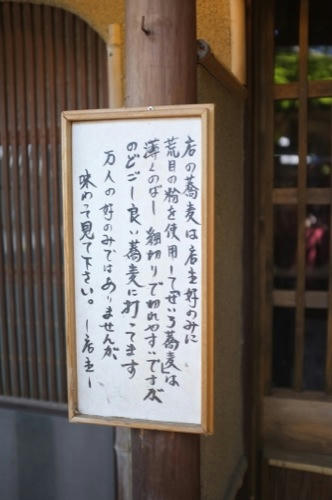 店の蕎麦は店主好のみに
荒目の粉を使用して「せいろ蕎麦」は
薄くのばし細切りで切れやすいですが
のどごし良い蕎麦に打ってます
万人の好のみではありませんが
味わって見て下さい。―店主―